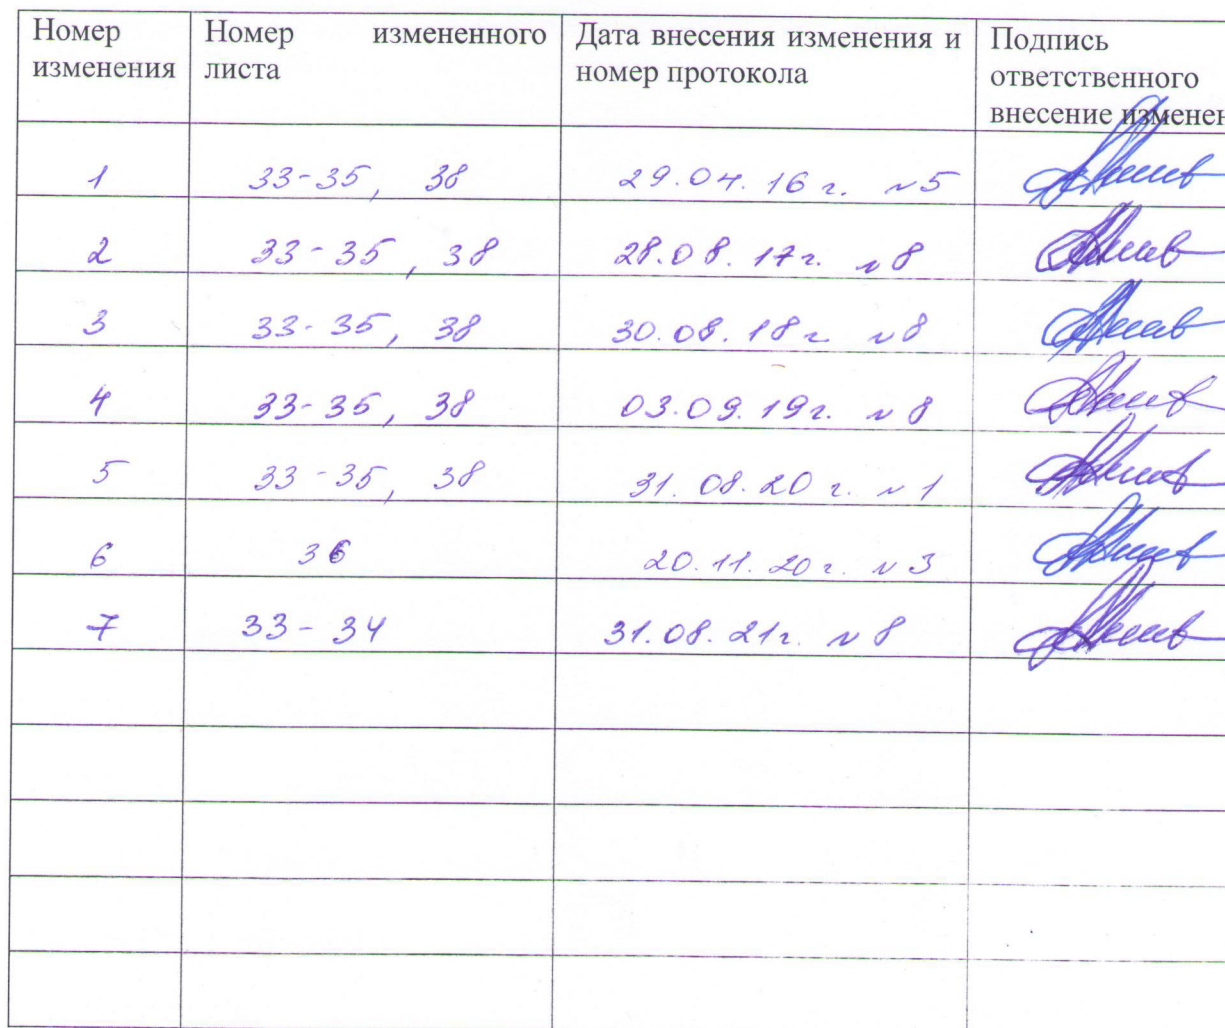 Номер изменения | Номер измененного листа | Дата внесения изменения и номер протокола | Подпись ответственного внесение изменен
1 | 33-35, 38 | 29.04.16 г. №5
2 | 33-35, 38 | 28.08.17г. №8
3 | 33-35, 38 | 30.08.18г. №8
4 | 33-35, 38 | 03.09.19г. №8
5 | 33-35, 38 | 31.08.20 г. №1
6 | 36 | 20.11.20г. №3
7 | 33-34 | 31.08.21г. №8